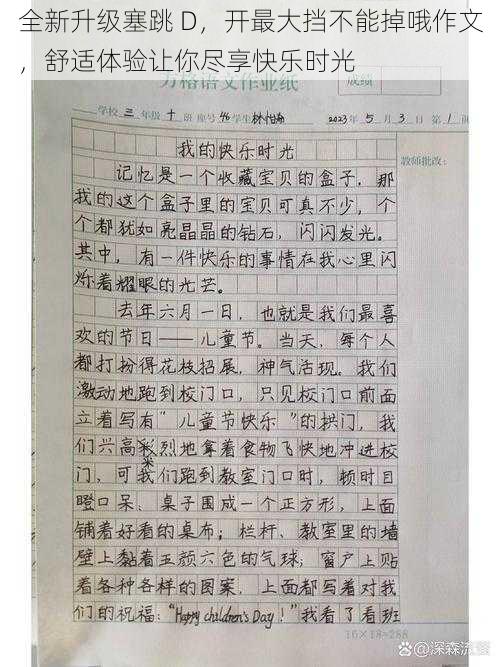 全新升级塞跳 D，开最大挡不能掉哦作文
，舒适体验让你尽享快乐时光
方格语文作业纸
成绩
学校 三 年级 十 班 座号 46 学生 林怡 2023 年 5 月 3 日 第 1 课
教师批改：
我的快乐时光
记忆是一个收藏宝贝的盒子，那
我的这个盒子里的宝贝可真不少，个
个都犹如亮晶晶的钻石，闪闪发光。
其中，有一件快乐的事情在我心里闪
烁着耀眼的光芒。
去年六月一日，也就是我们最喜
欢的节日——儿童节。当天，每个人
都打扮得花枝招展，神气活现。我们
激动地跑到校门口，只见校门口前面
立着写有“儿童节快乐”的拱门，我
们兴高彩烈地拿着食物飞快地冲进校
采
门，可我们跑到教室门口时，顿时目
瞪口呆、桌子围成一个正方形，上面
铺着好看的桌布；栏杆、教室里的墙
壁上黏着五颜六色的气球；窗户上贴
着各种各样的图案，上面都写着对我
们的祝福：“Happy children's Day！”我看了看班
16×18=288
@深森流馨